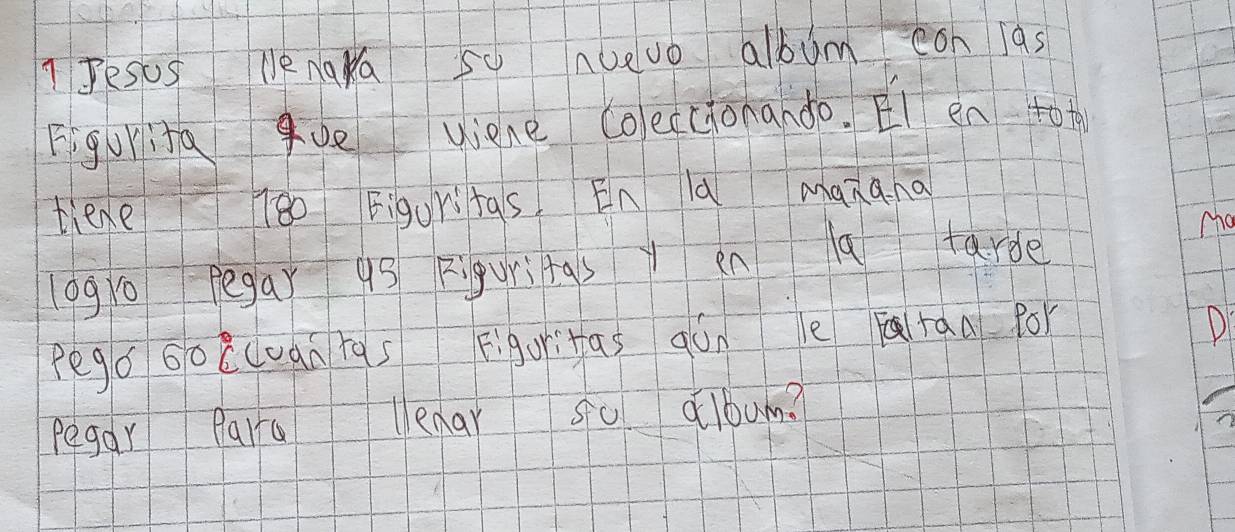 1 Jesus llenara su nuevo albúm con las
Figurita que viene coleccionando. Él en total
tiene 180 Figuritas. En la mañana
logro pegar 45 Figuritas y en la tarde
Pegó 60 ¿cuántas Figuritas aún le faltan Por
pegar Para llenar su álbum?
Ma
D